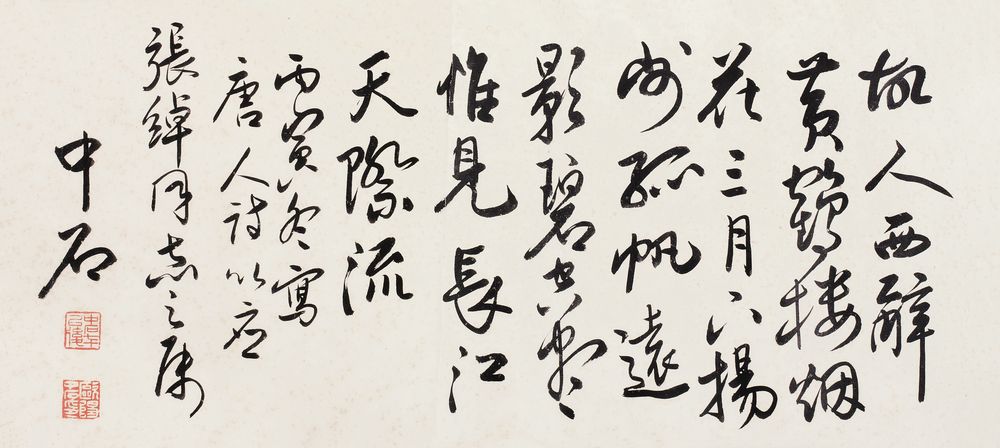 故人西辭
黄鶴楼烟
花三月下揚
州孤帆遠
影碧空盡
惟見長江
天際流
丙寅冬寫
唐人詩以應
張綽同志之属
中石